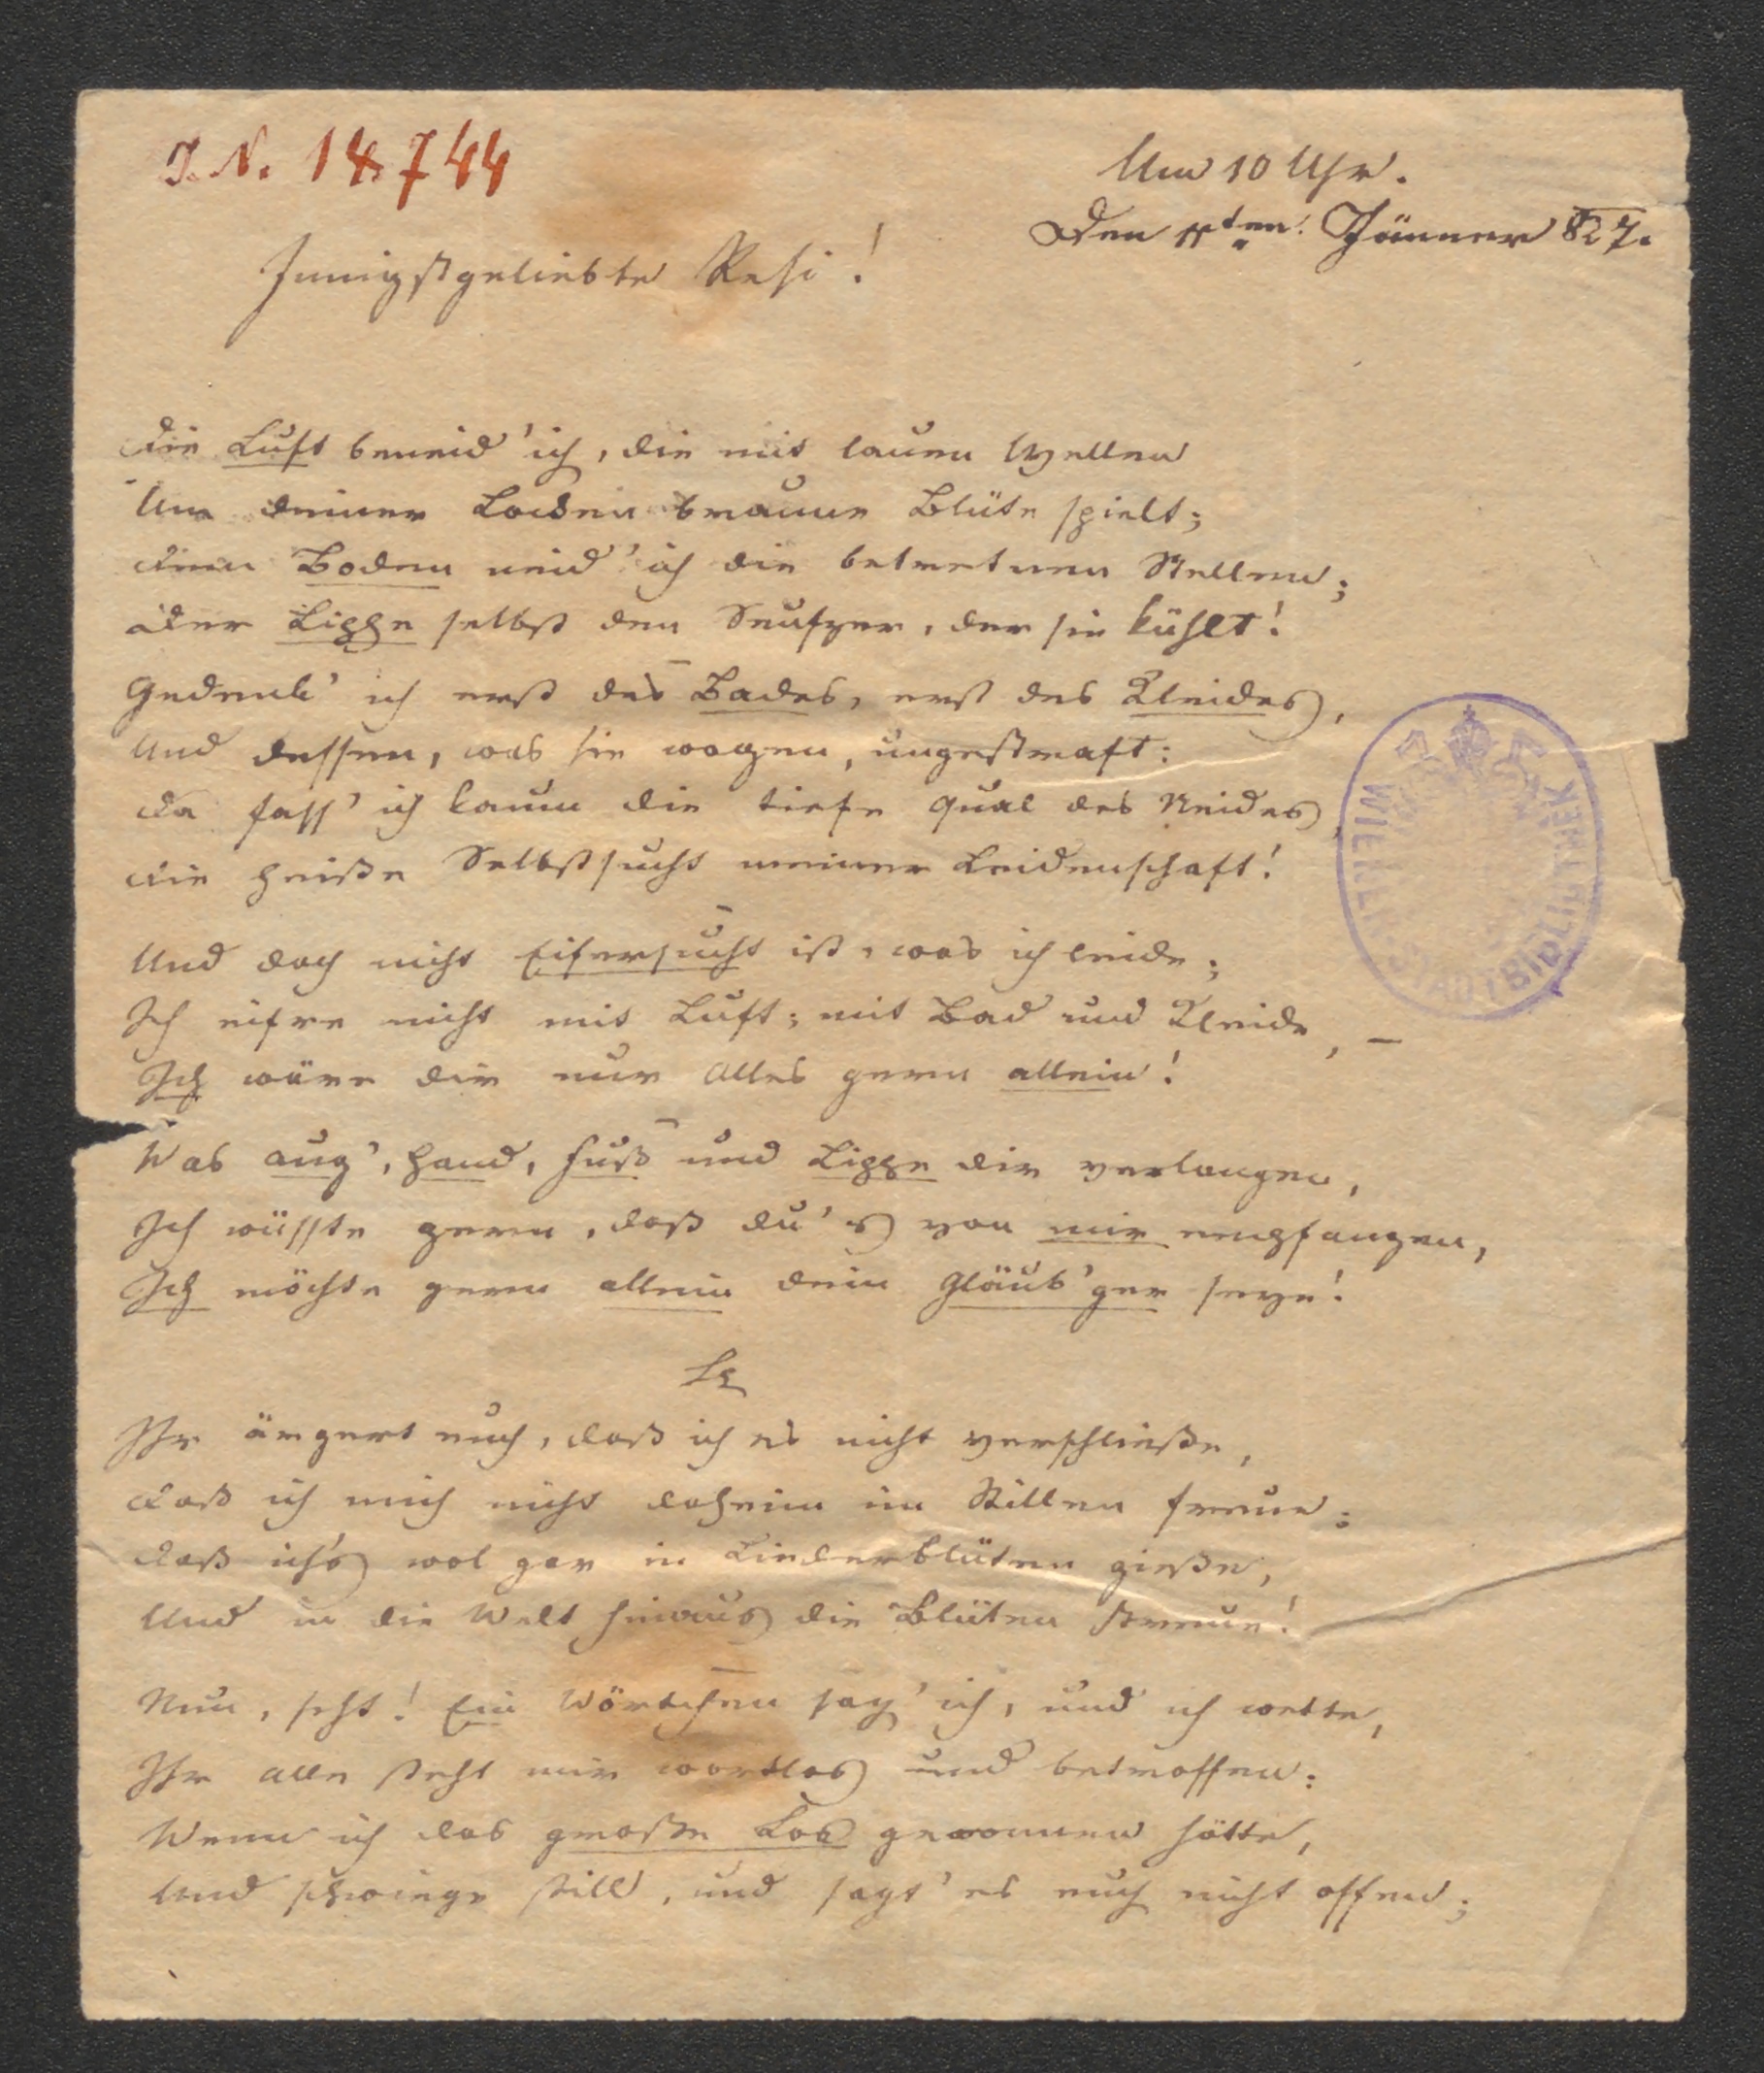 I. N. 18744
Um 10 Uhr.
Den 11ten Jänner 827.
Innigstgeliebte Resi!
Die Luft beneid' ich, die mit lauen Wellen
Um deiner Locken braune Blüte spielt;
dem Boden neid' ich die betretnen Stellen;
der Lippe selbst den Seufzer, der sie kühlt!
Gedenk' ich erst des Bades, erst des Kleides,
Und dessen, was sie wagen, ungestraft:
da fass' ich kaum die tiefe Qual des Neides,
die heiße Selbstsucht meiner Leidenschaft!
Und doch nicht Eifersucht ist, was ich leide;
Ich eifre nicht mit Luft; mit Bad und Kleide, –
Ich wäre dir nur Alles gern allein!
Was Aug', Hand, Fuß und Lippe dir verlangen,
Ich wüsste gern, daß du's von mir empfangen,
Ich möchte gern allein dein Gläub'ger seyn!
Ihr ärgert euch, daß ich es nicht verschließe,
daß ich mich nicht daheim im Stillen freue;
daß ich's wol gar in Liederblüten gieße,
Und in die Welt hinaus die Blüten streue!
Nun, seht! Ein Wörtchen sag' ich, und ich wette,
Ihr alle steht mir wortlos und betroffen:
Wenn ich das große Los gewonnen hätte,
Und schwiege still, und sagt' es euch nicht offen;
WIENER STADTBIBLIOTHEK